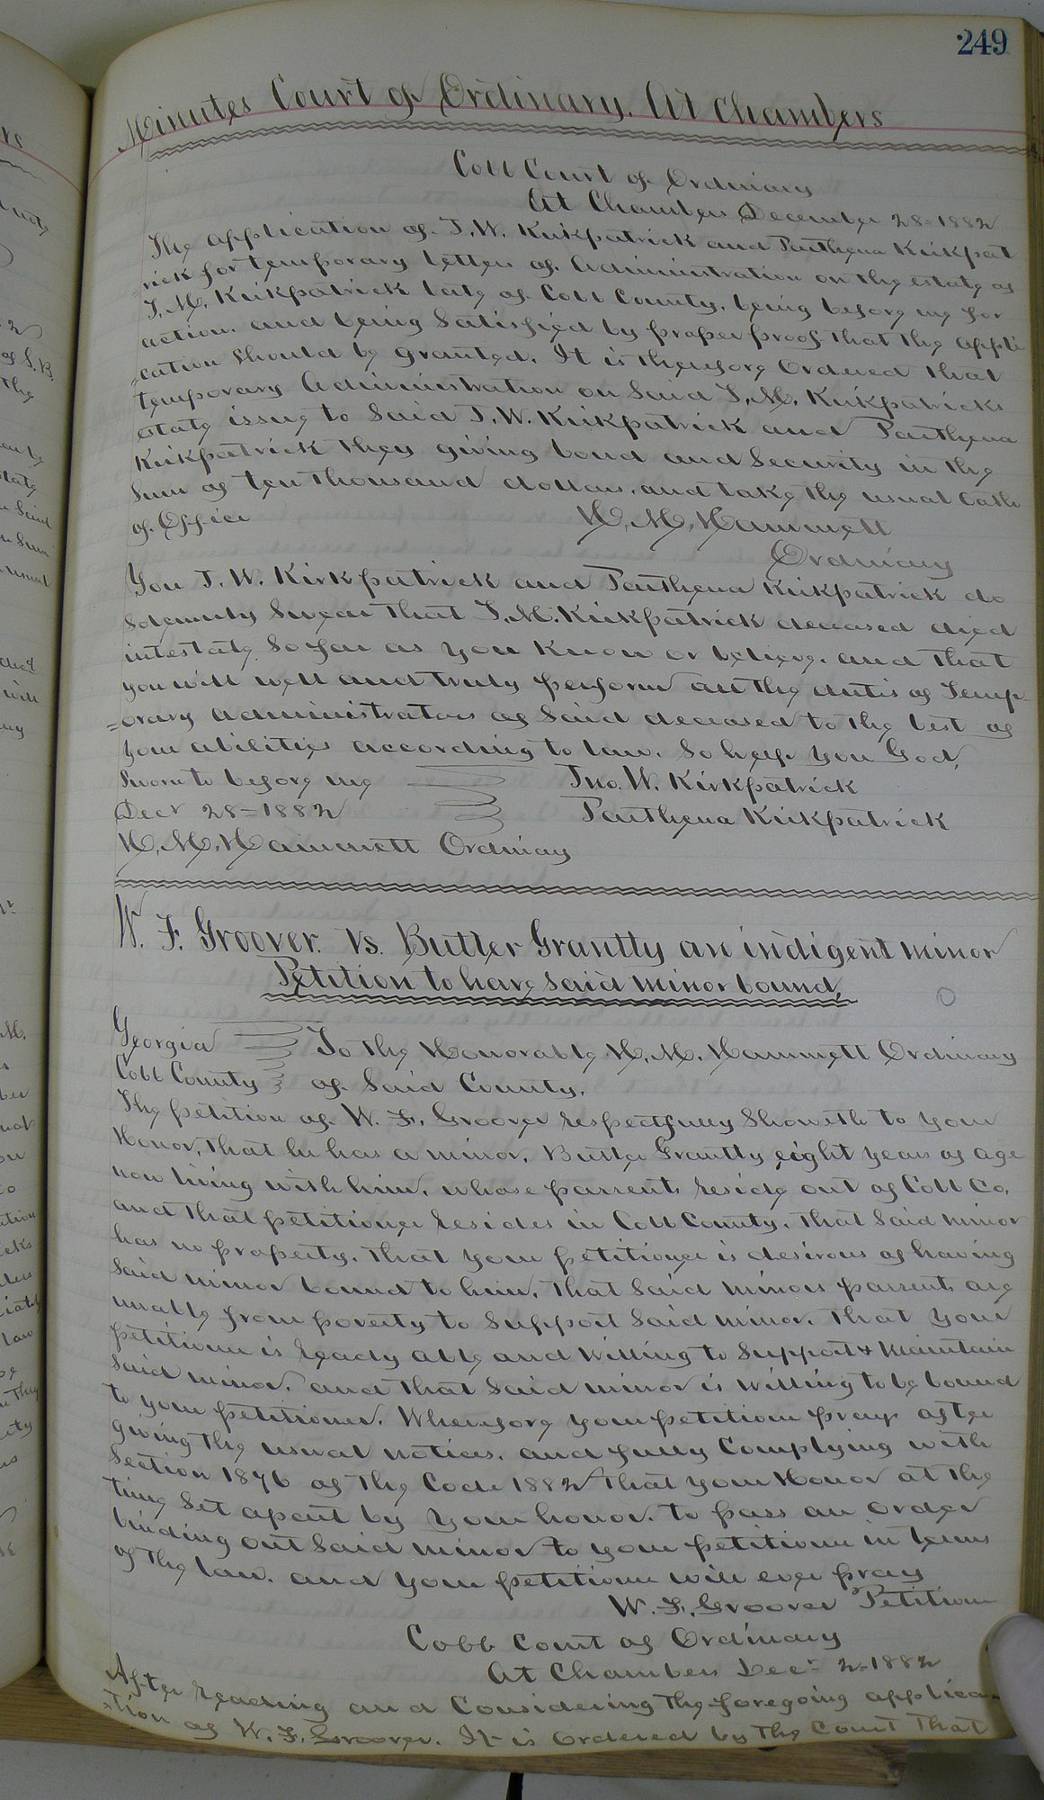 249
Minutes Court of Ordinary. At Chambers
Cobb Court of Ordinary
At Chambers December 28-1882
The application of J.W. Kirkpatrick and Parthena Kirkpat
rick for temporary letters of Administration on the estate of
J.M. Kirkpatrick late of Cobb County, being before me for
action. and being Satisfied by proper proof that the appli
cation Should be granted. It is therefore Ordered that
temporary Administration on Said J.M. Kirkpatricks
estate issue to Said J.W. Kirkpatrick and Parthena
Kirkpatrick they giving bond and Security in the
Sum of ten thousand dollars, and take the usual Oath
of Office H.M. Hammett
Ordinary
You J.W. Kirkpatrick and Parthena Kirkpatrick do
Solemnly Swear that J.M. Kirkpatrick deceased died
intestate So far as you Know or believe, and that
you will well and truly perform all the duties of Temp
=orary Administrators of Said deceased to the best of
your abilities according to law. So help you God.
Sworn to before me Jno. W. Kirkpatrick
Decr 28-1882 Parthena Kirkpatrick
H.M. Hammett Ordinary
W. F. Groover. Vs. Butler Grantty an indigent minor
Petition to have said minor bound.
Georgia To the Honorable H.M. Hammett Ordinary
Cobb County of Said County.
The petition of W. F. Groover respectfully Showeth to your
Honor, that he has a minor, Butler Grantty eight years of age
now living with him, whose parrents reside out of Cobb Co.
and that petitioner resides in Cobb County. That Said minor
has no property. That your petitioner is desirous of having
Said minor bound to him. That Said minors parrents are
unable from poverty to Support Said minor. That your
petitioner is ready able and willing to Support & Maintain
Said minor. and that Said minor is willing to be bound
to your petitioner. Wherefore your petitioner prays after
giving the usual notices, and fully Complying with
Section 1876 of The Code 1882 that your Honor at the
time Set apart by your honor. to pass an order
binding out Said minor to your petitioner in terms
of the law. and your petitioner will ever pray
W. F. Groover Petitioner
Cobb Court of Ordinary
At Chambers Dec 2-1882
After reading and Considering the foregoing applica-
tion of W. F. Groover. It is ordered by the Court That